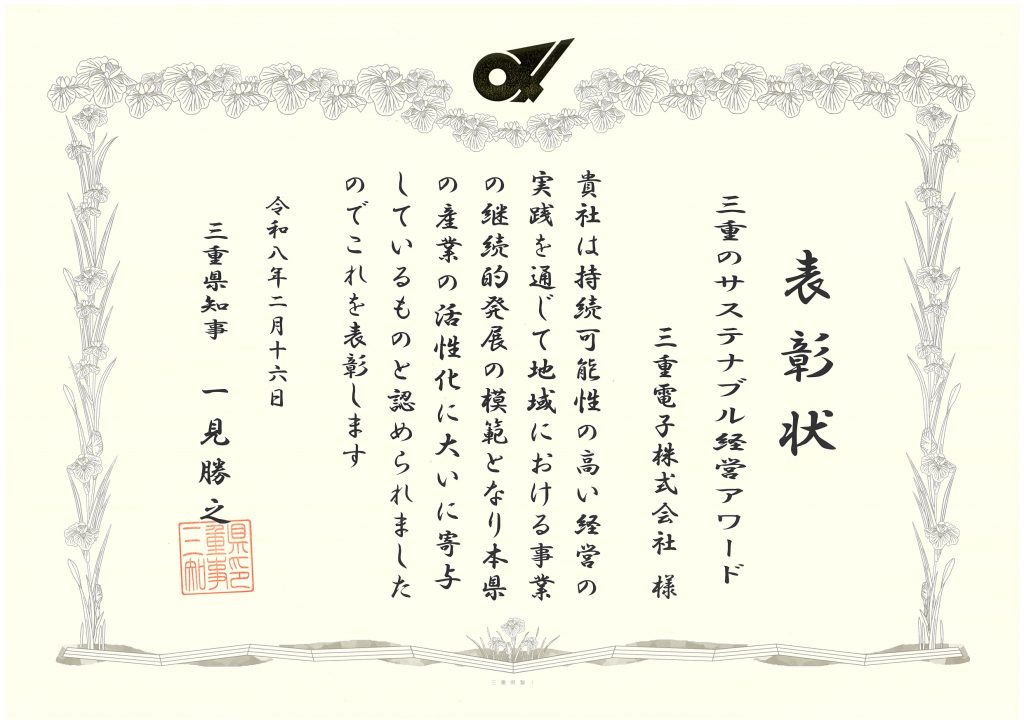 表彰状
三重のサステナブル経営アワード
三重電子株式会社 様
貴社は持続可能性の高い経営の
実践を通じて地域における事業
の継続的発展の模範となり本県
の産業の活性化に大いに寄与
しているものと認められました
のでこれを表彰します
令和八年二月十六日
三重県知事 一見勝之